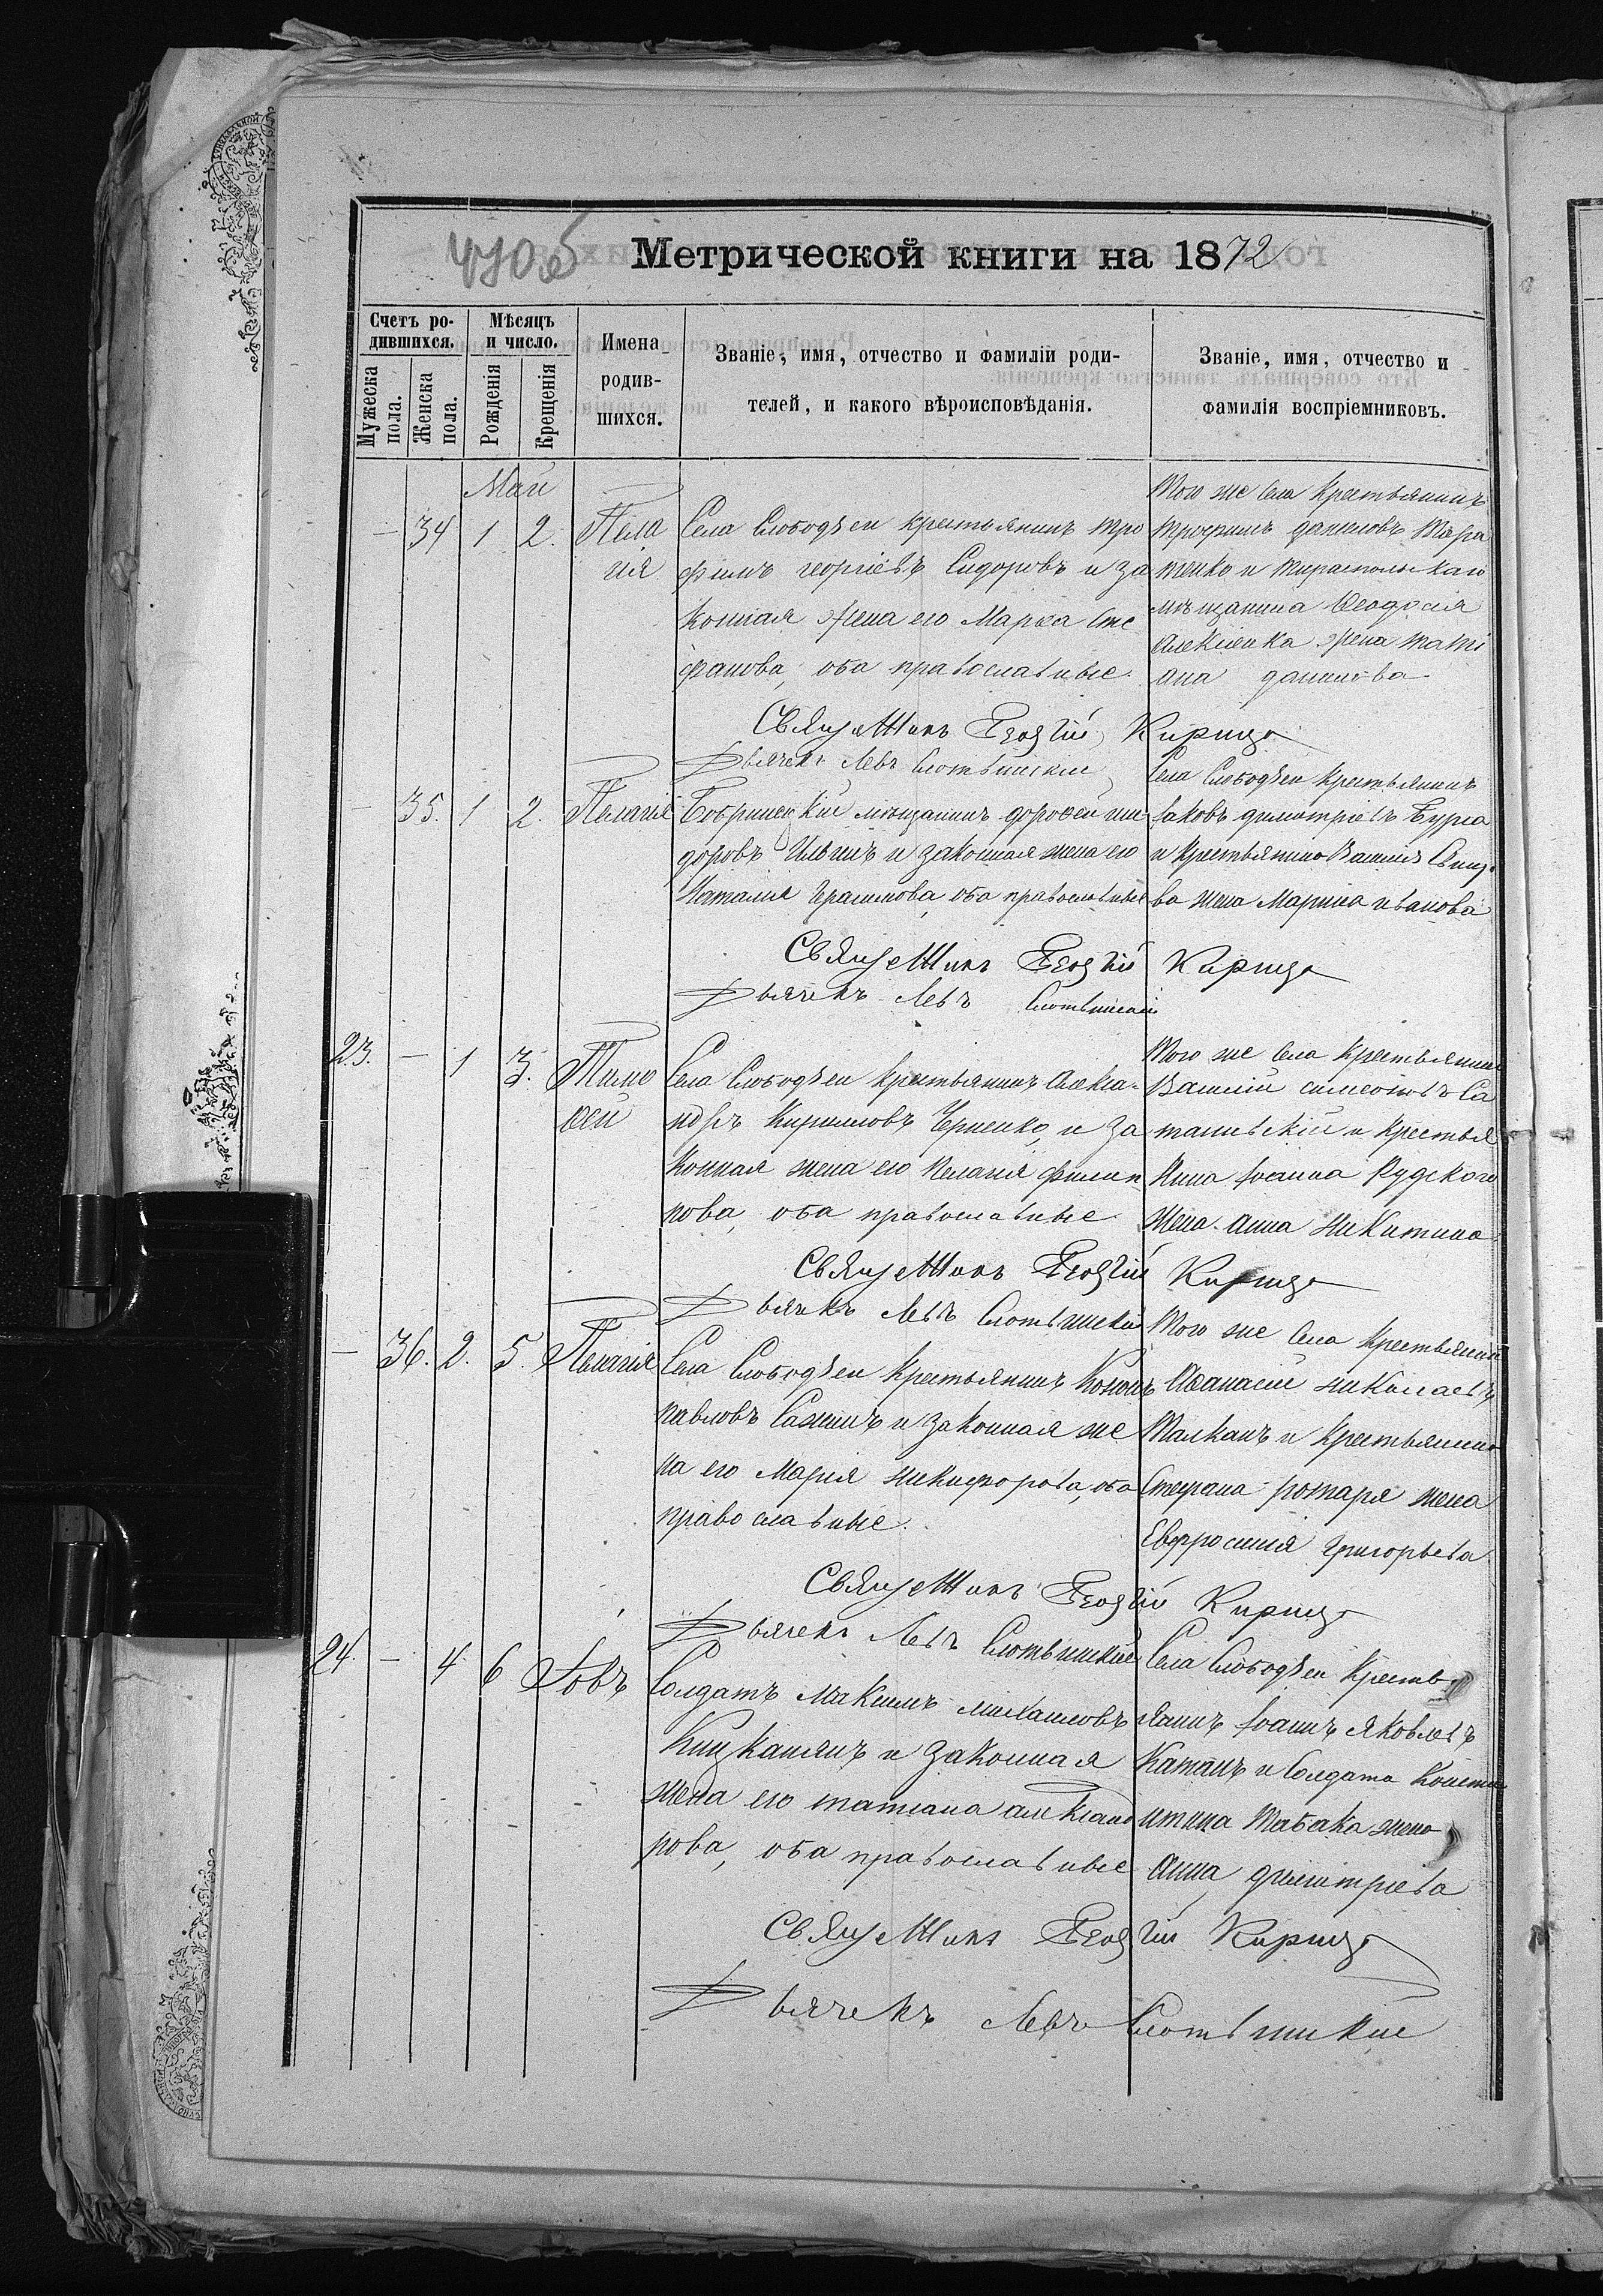 Метрической книги на 1872
Счетъ родившихся.
Мужеска пола.
Женска пола.
Мѣсяцъ и число.
Рожденія
Крещенія
Имена родившихся.
Званіе, имя, отчество и фамиліи родителей, и какого вѣроисповѣданія.
Званіе, имя, отчество и фамилія воспріемниковъ.
Май
— 34 1 2. Пела
гія
Села Слободзеи крестьянинъ Тро
фимъ георгіевъ Сидоровъ и за
конная жена его Марѳа Сте
фанова, оба православные.
Того же села Крестьянинъ
Трофимъ даниловъ Тара
тенко и тираспольскаго
мѣщанина Ѳеодосія
Алексіенка жена тати
ана данилова
Священникъ Георгій Кирица
Дьячекъ Левъ
— 35. 1 2. Пелагія
Бобринецкій мѣщанинъ дороѳей иси
доровъ Ильинъ и законная жена его
Наталія Герасимова, оба православные
Села Слободзеи Крестьянинъ
Іаковъ димитріевъ Бурла
и Крестьянина
ва жена Марина иванова
Священникъ Георгій Кирица
Дьячекъ Левъ
23. — 1 3. Тимо
ѳей
Села Слободзеи Крестьянинъ Алекса-
ндръ Кирилловъ Черненко, и за
конная жена его Пелагія филип
пова, оба православные
Того же села Крестьянинъ
Василій симеоновъ Са
тановскій и Крестья
нина Іоанна Рудского
жена Анна Никитина
Священникъ Георгій Кирица
Дьячекъ Левъ
— 36. 2. 5. Пелагія
Села Слободзеи Крестьянинъ Кононъ
павловъ Сажинъ и законная же
на его Марія никифорова, оба
православные.
Того же села Крестьянинъ
Аѳанасій николаевъ
Талканъ и Крестьянина
Стефана ротаря жена
Евфросинія Григорьева
Священникъ Георгій Кирица
Дьячекъ Левъ
24. — 4 6 Іовъ
Солдатъ Максимъ михаиловъ
Кицканянъ и законная
жена его татиана александ
рова, оба православные
Села Слободзеи Кресть
янинъ Іоаннъ Яковлевъ
Катанъ и Солдата Конста
нтина Табака жена
Анна димитріева
Священникъ Георгій Кирица
Дьячекъ Левъ